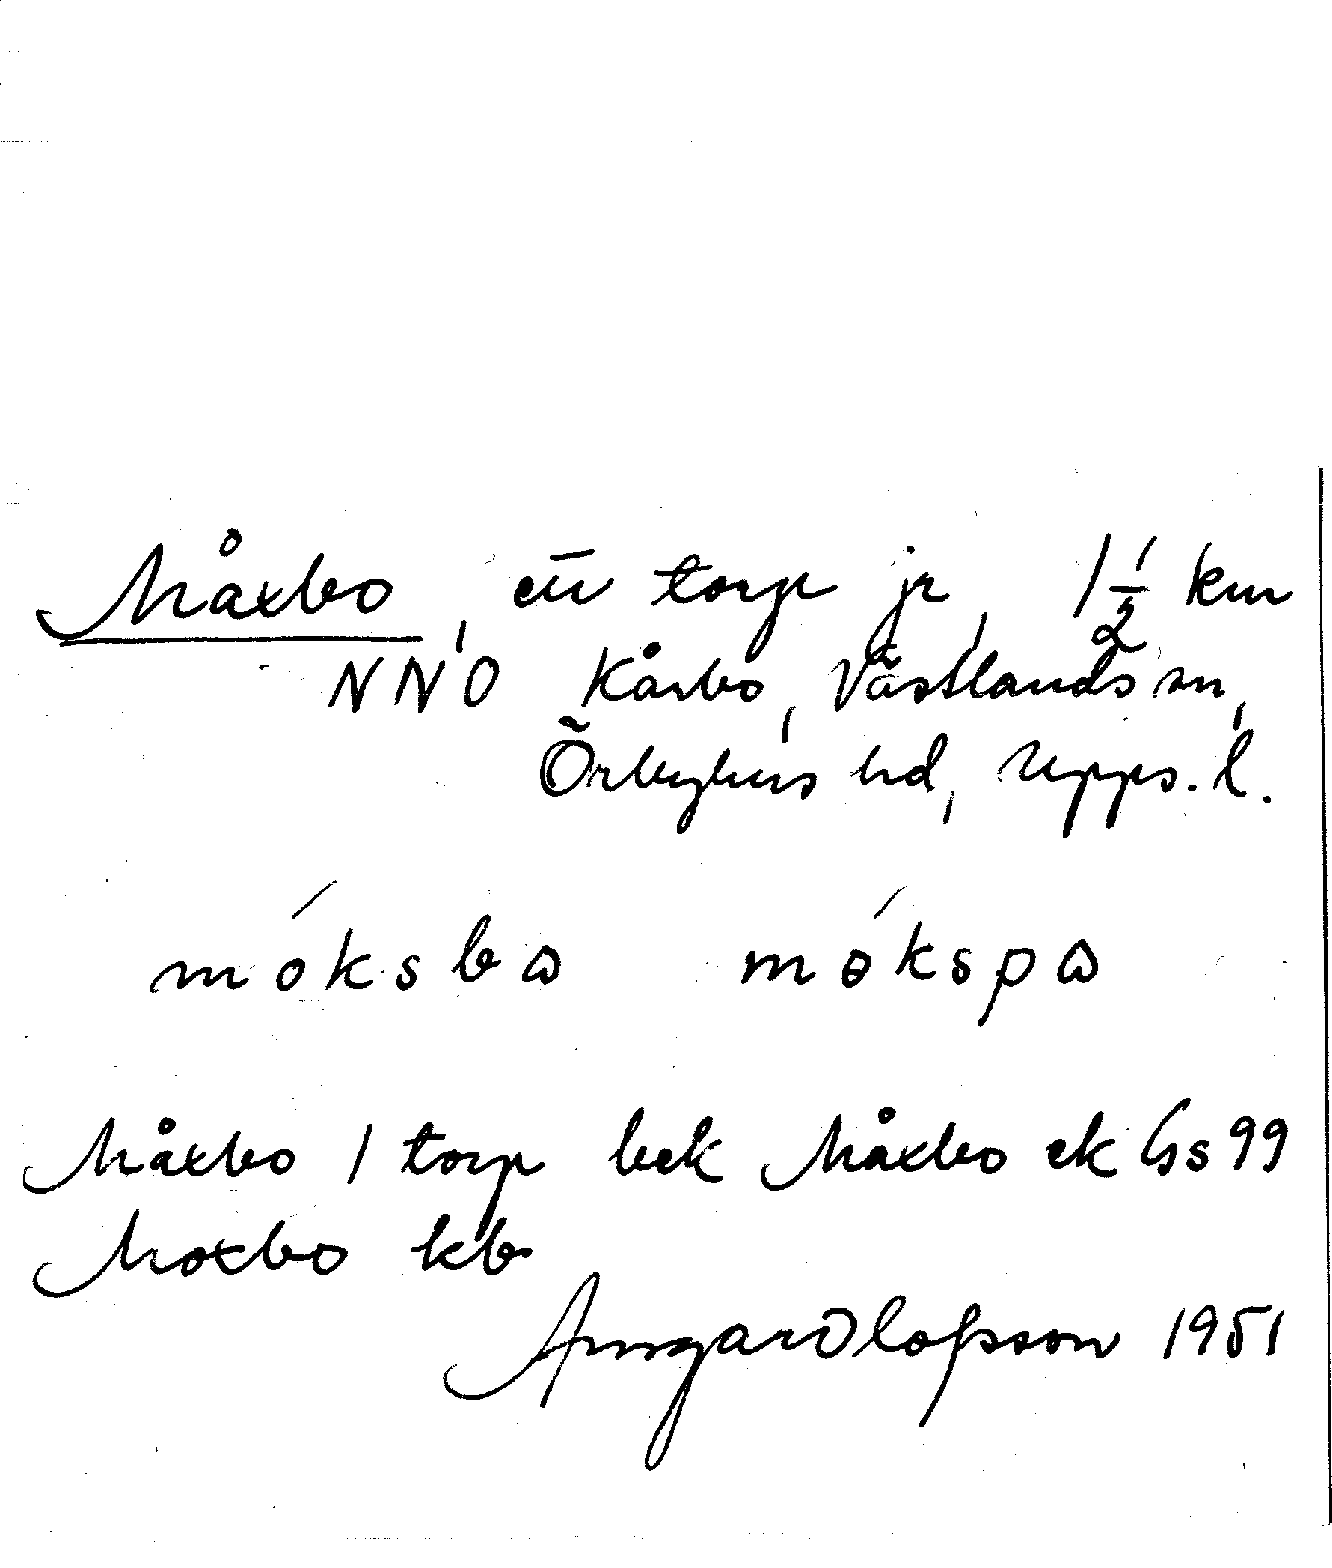 Måxbo, ett torp jr, 1 1/2 km
NNO Kårbo, Västlands sn,
Örbyhus hd, Upps. l.
móksbω mókspω
Måxbo 1 torp bek Måxbo ek Gs 99
Moxbo kb
Olofsson 1951